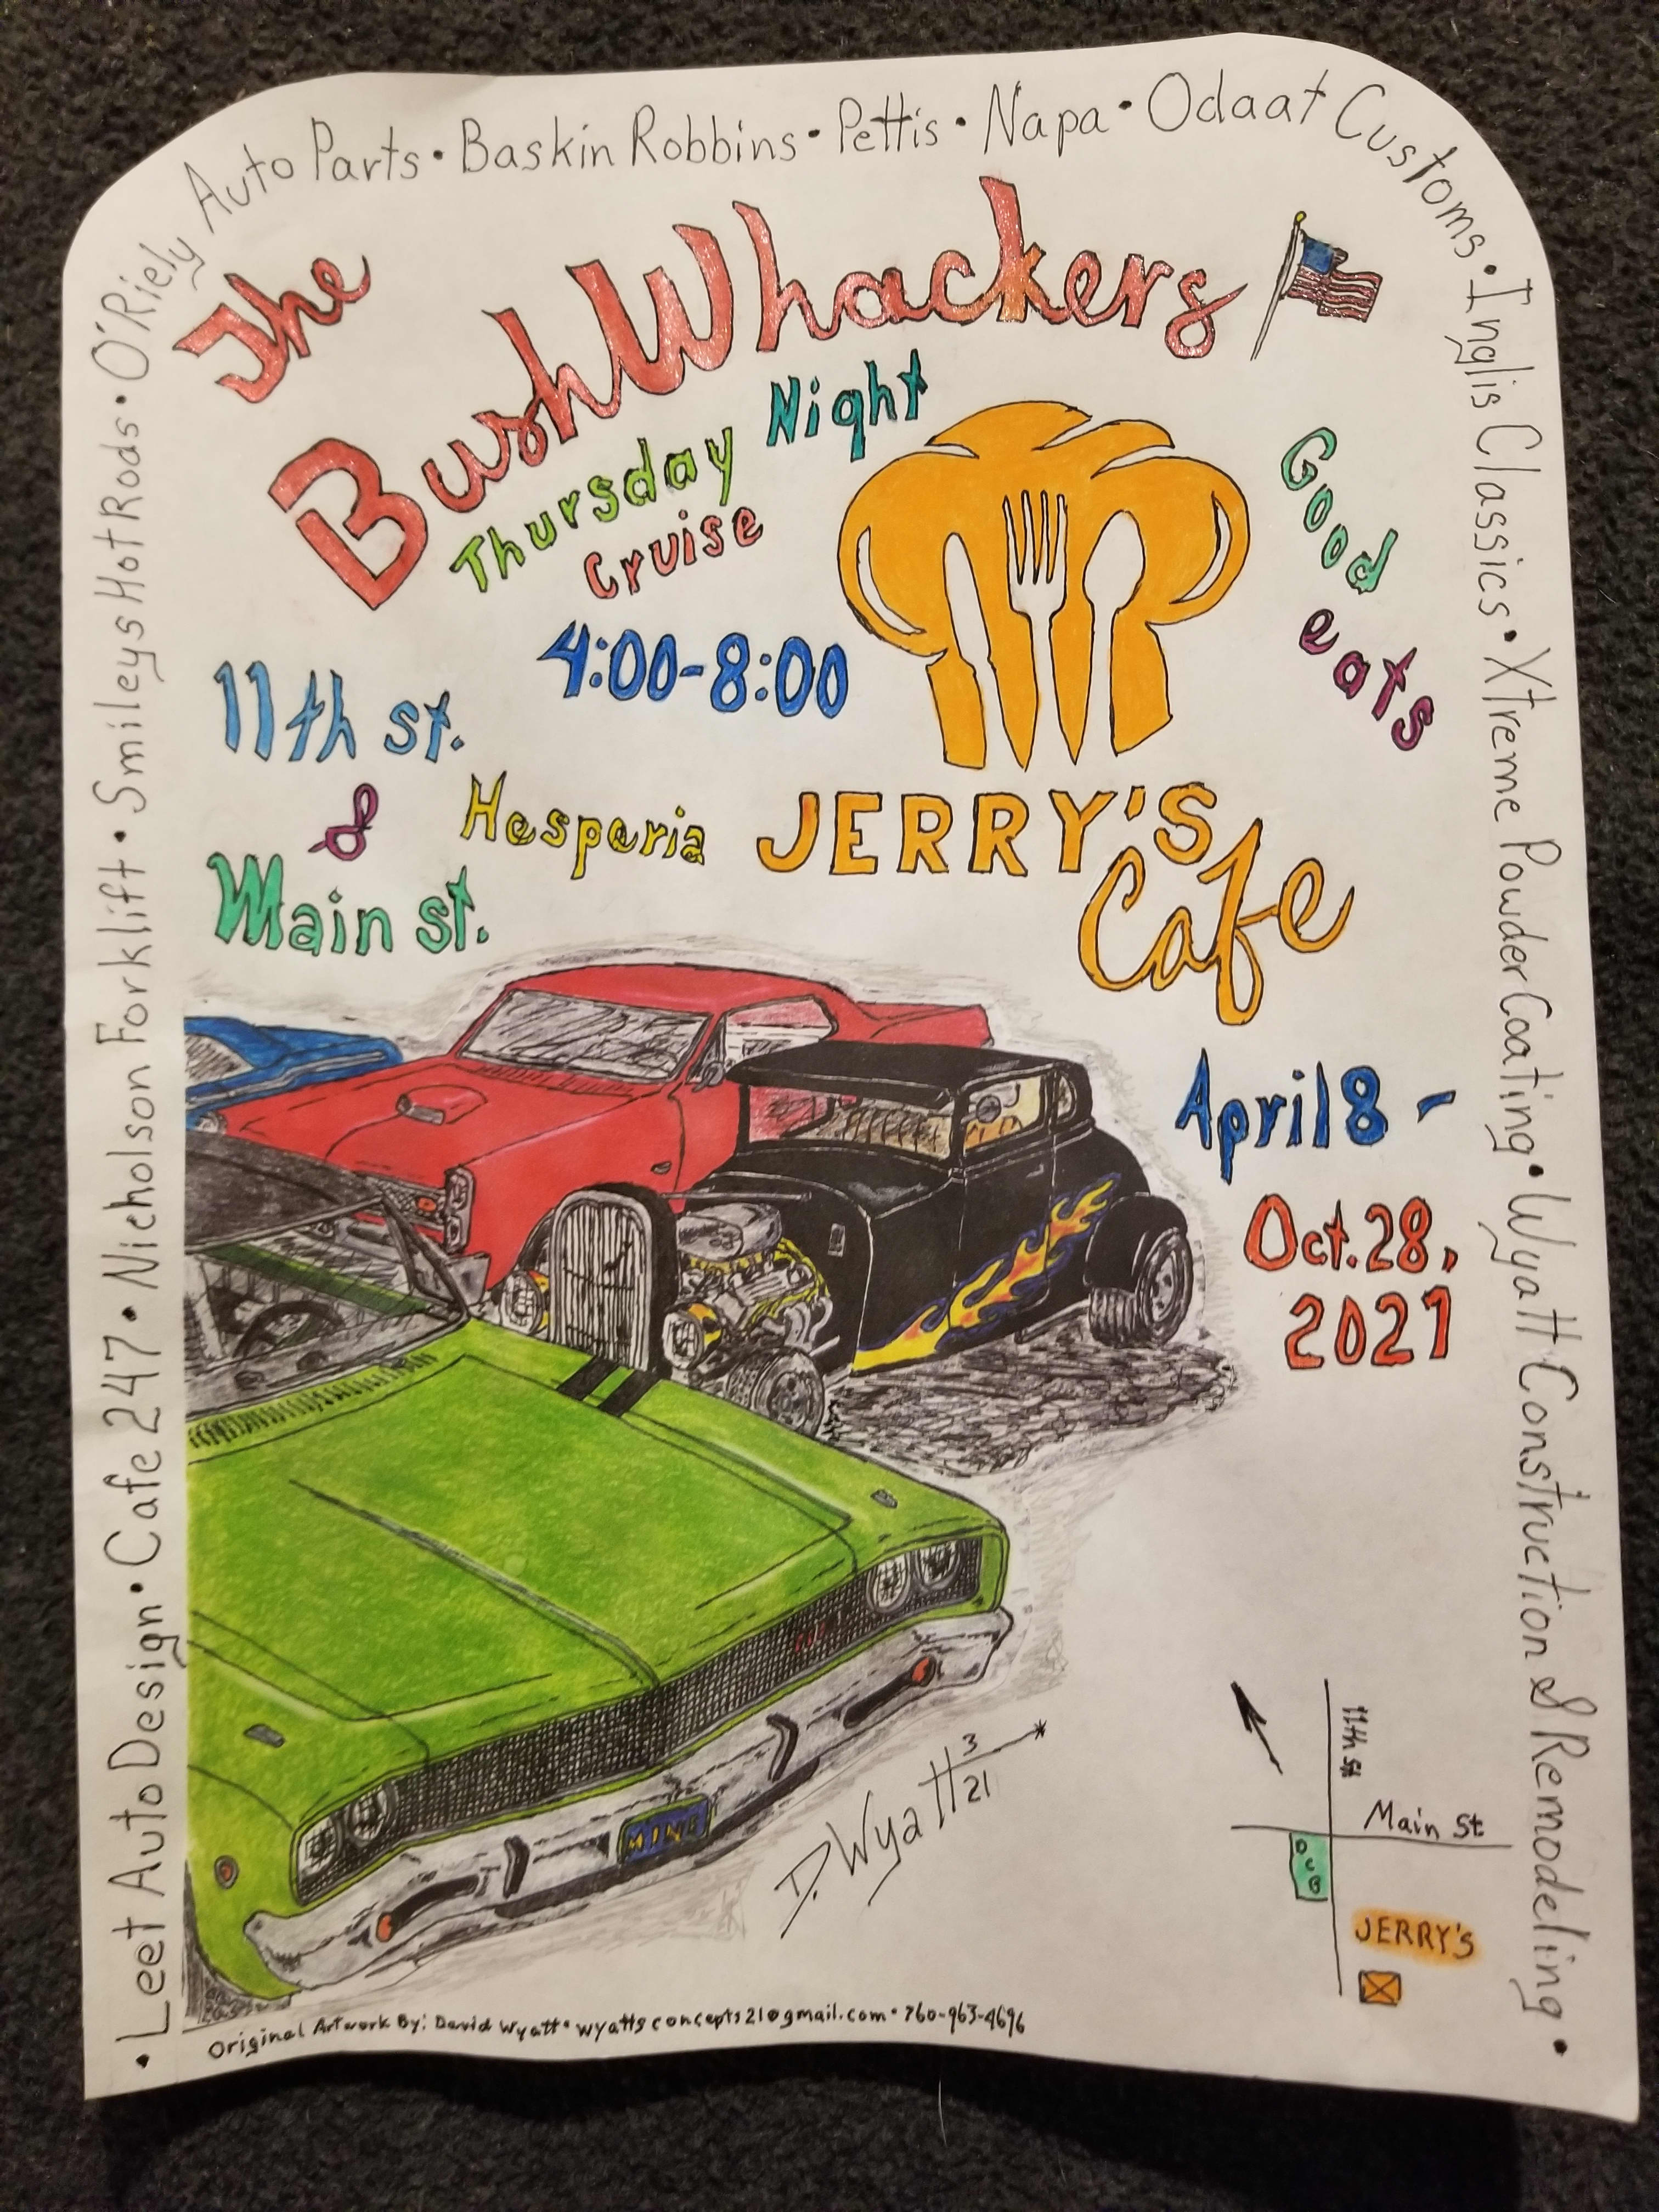 • Leet Auto Design • Cafe 247 • Nicholson Forklift • Smileys Hot Rods • O'Riely Auto Parts • Baskin Robbins • Pettis • Napa • Odaat Customs • Inglis Classics • Xtreme Powder Coating • Wyatt Construction & Remodeling •
The
BushWhackers
Thursday Night
Cruise
4:00-8:00
Good
eats
11th st.
&
Main st.
Hesperia
JERRY'S
Cafe
April 8 -
Oct. 28,
2021
D. Wyatt 3/21
11th st
Main St
JERRY'S
Original Artwork By: David Wyatt • wyattsconcepts21@gmail.com • 760-963-4696